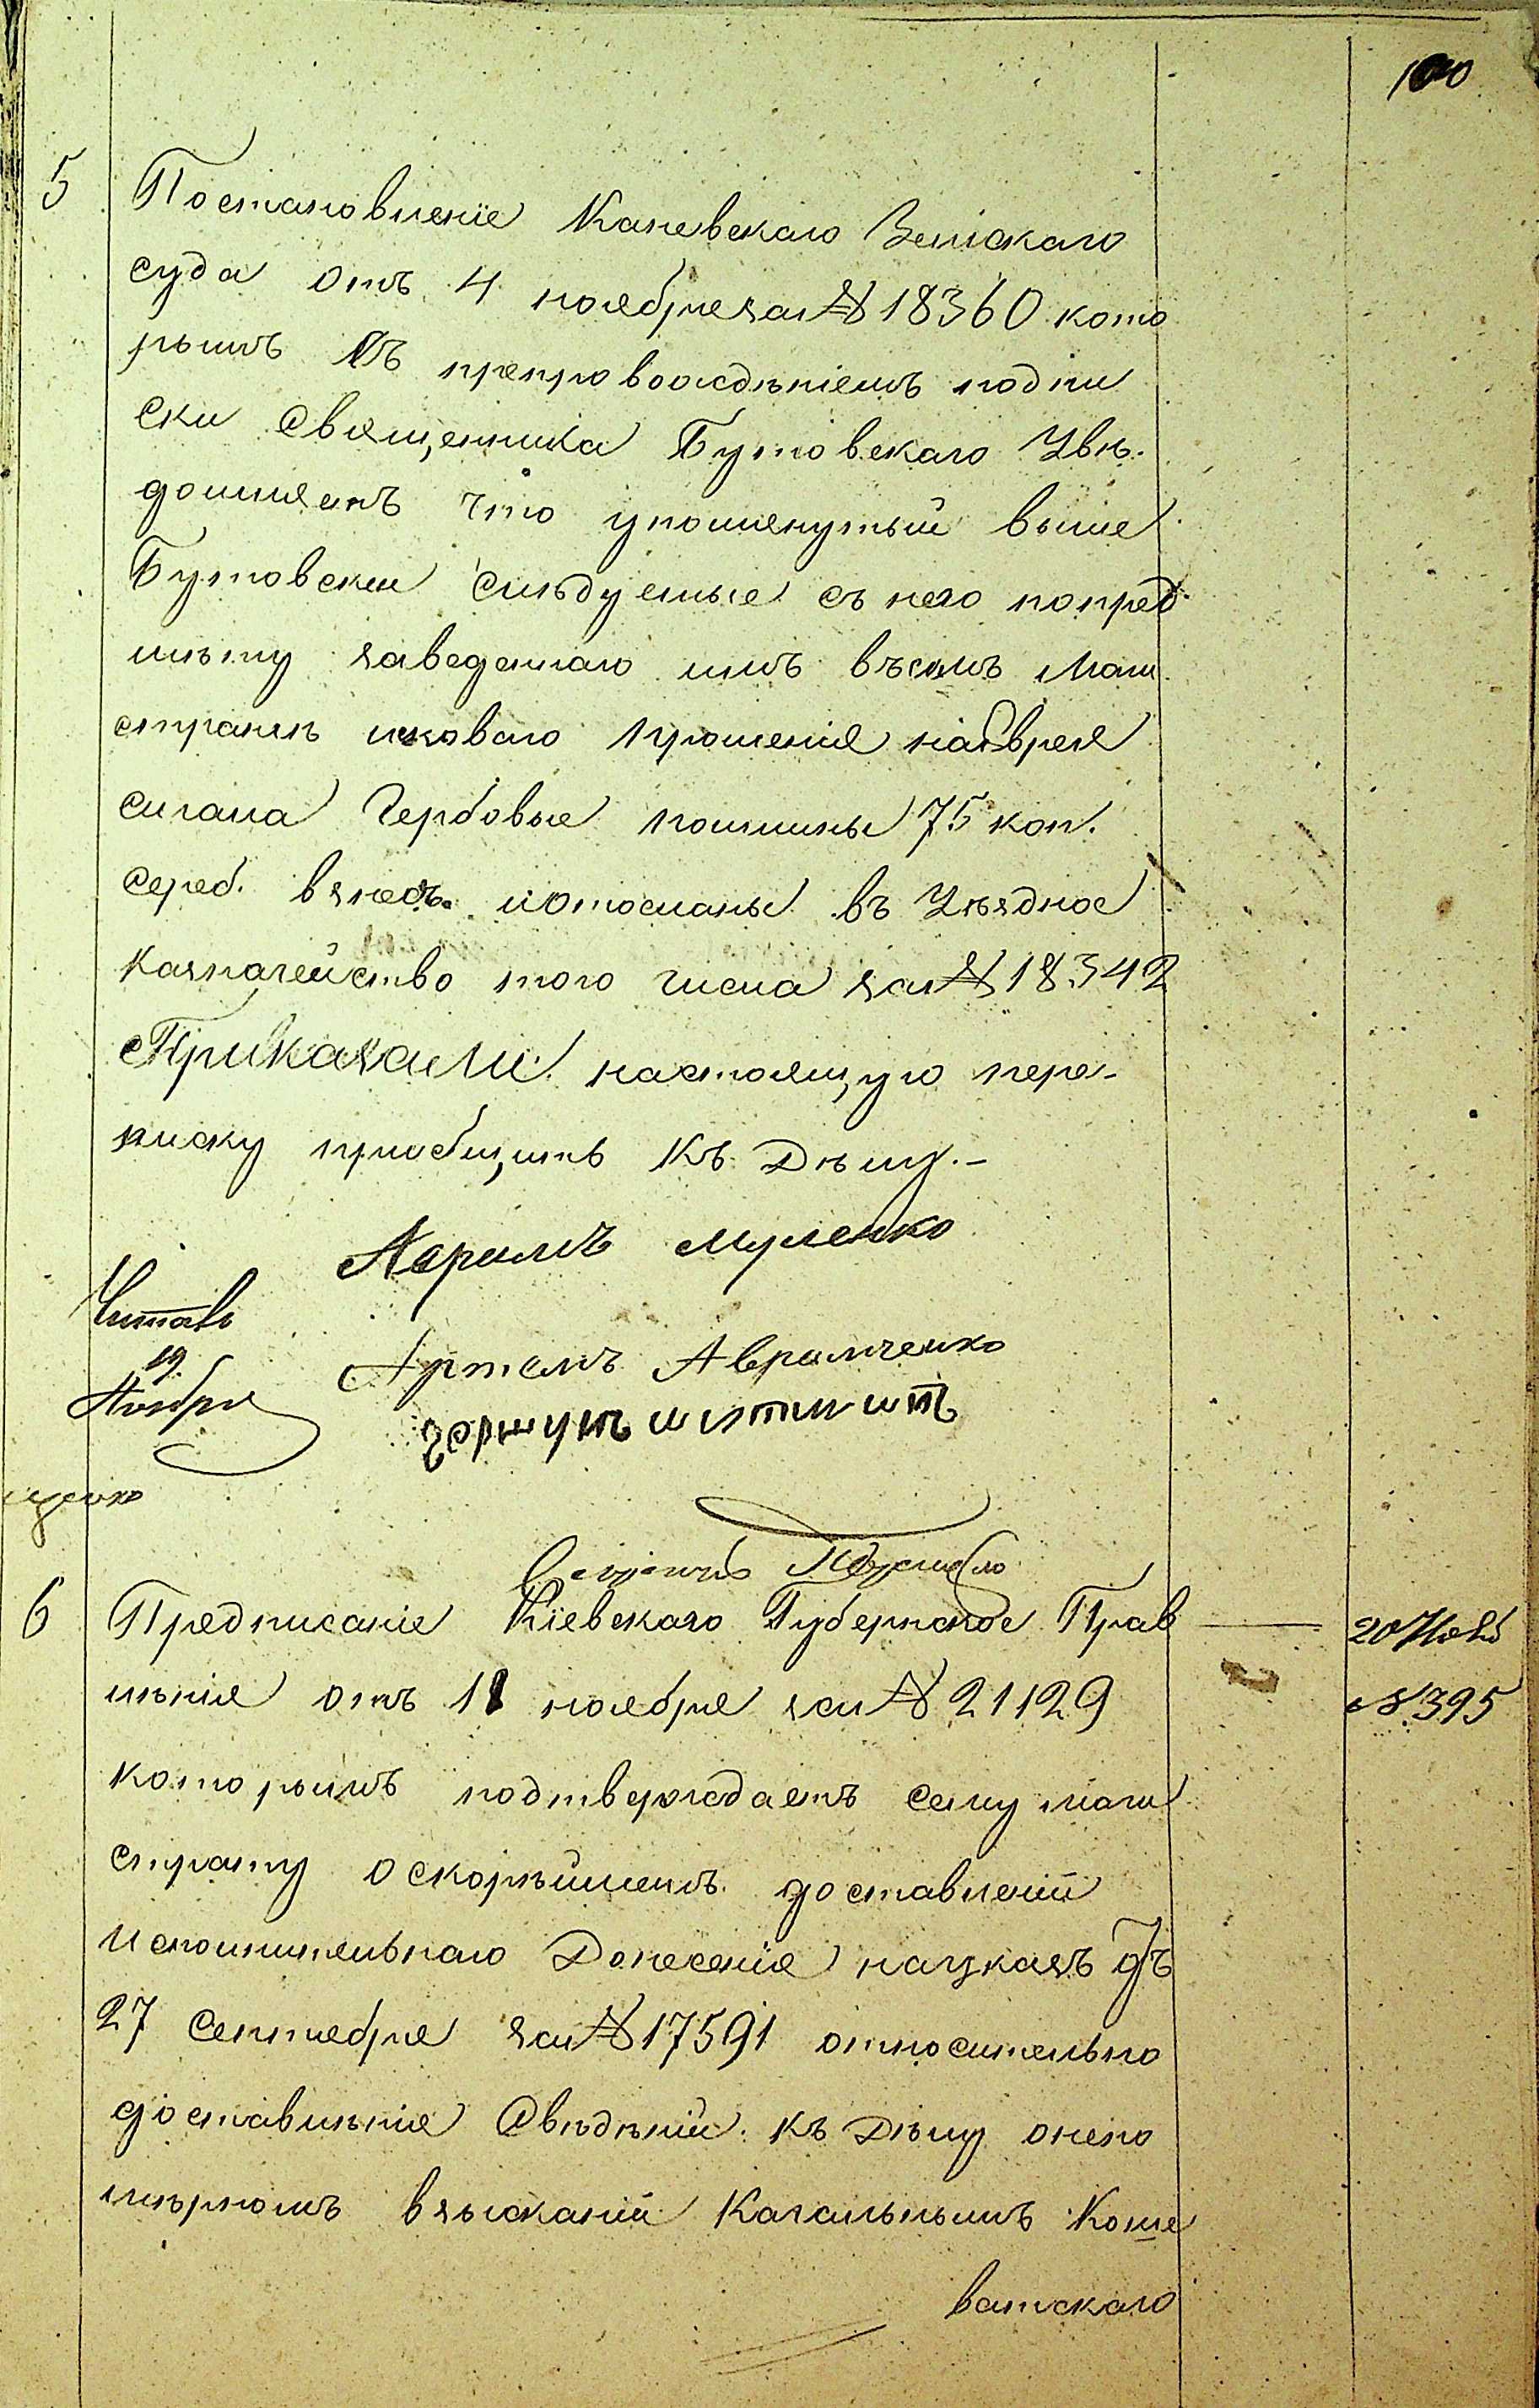 100
5 Постановленіе Каневскаго Земскаго
суда отъ 4 ноебря за № 18360 кото
рымъ съ препровождѣніемъ подпи
ски Священика Бутовскаго Увѣ.
домляетъ что упоменутый выше
Бутовскии слѣдуемые съ него попред
мѣту заведеннаго имъ въсемъ Маги
стратѣ исковаго прошенія на Еврея
Гербовые пошлины 75 коп.
сереб. иотосланы въ Уѣздное
Казначейство того числа за № 18342
Приказали: настоящую пере-
писку приобщить Къ Дѣлу.-
Читалъ
19
Ноября
Артемъ Аврамченко
6 Предписаніе Кіевскаго Губернское Прав
20 Нояб
лѣніе отъ 11 ноебря за № 21129
№ 395
которымъ подтверждаетъ сему маги
страту оскорѣйшемъ доставленіи
исполнительнаго Донесеніе науказъ отъ
27 Сентебря за № 17591 относительно
доставлѣніе Свѣдѣній къ Дѣлу онепо
мѣрномъ взысканіи Кагальнымъ Коше
ватскаго